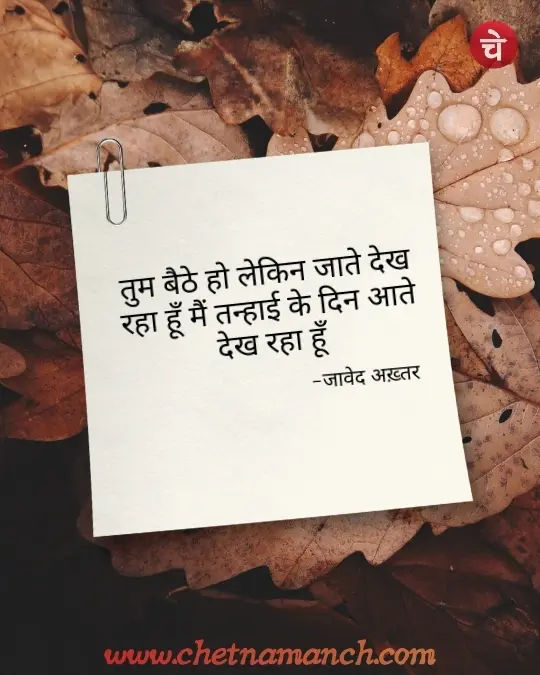 चे
तुम बैठे हो लेकिन जाते देख
रहा हूँ मैं तन्हाई के दिन आते
देख रहा हूँ
-जावेद अख़्तर
www.chetnamanch.com